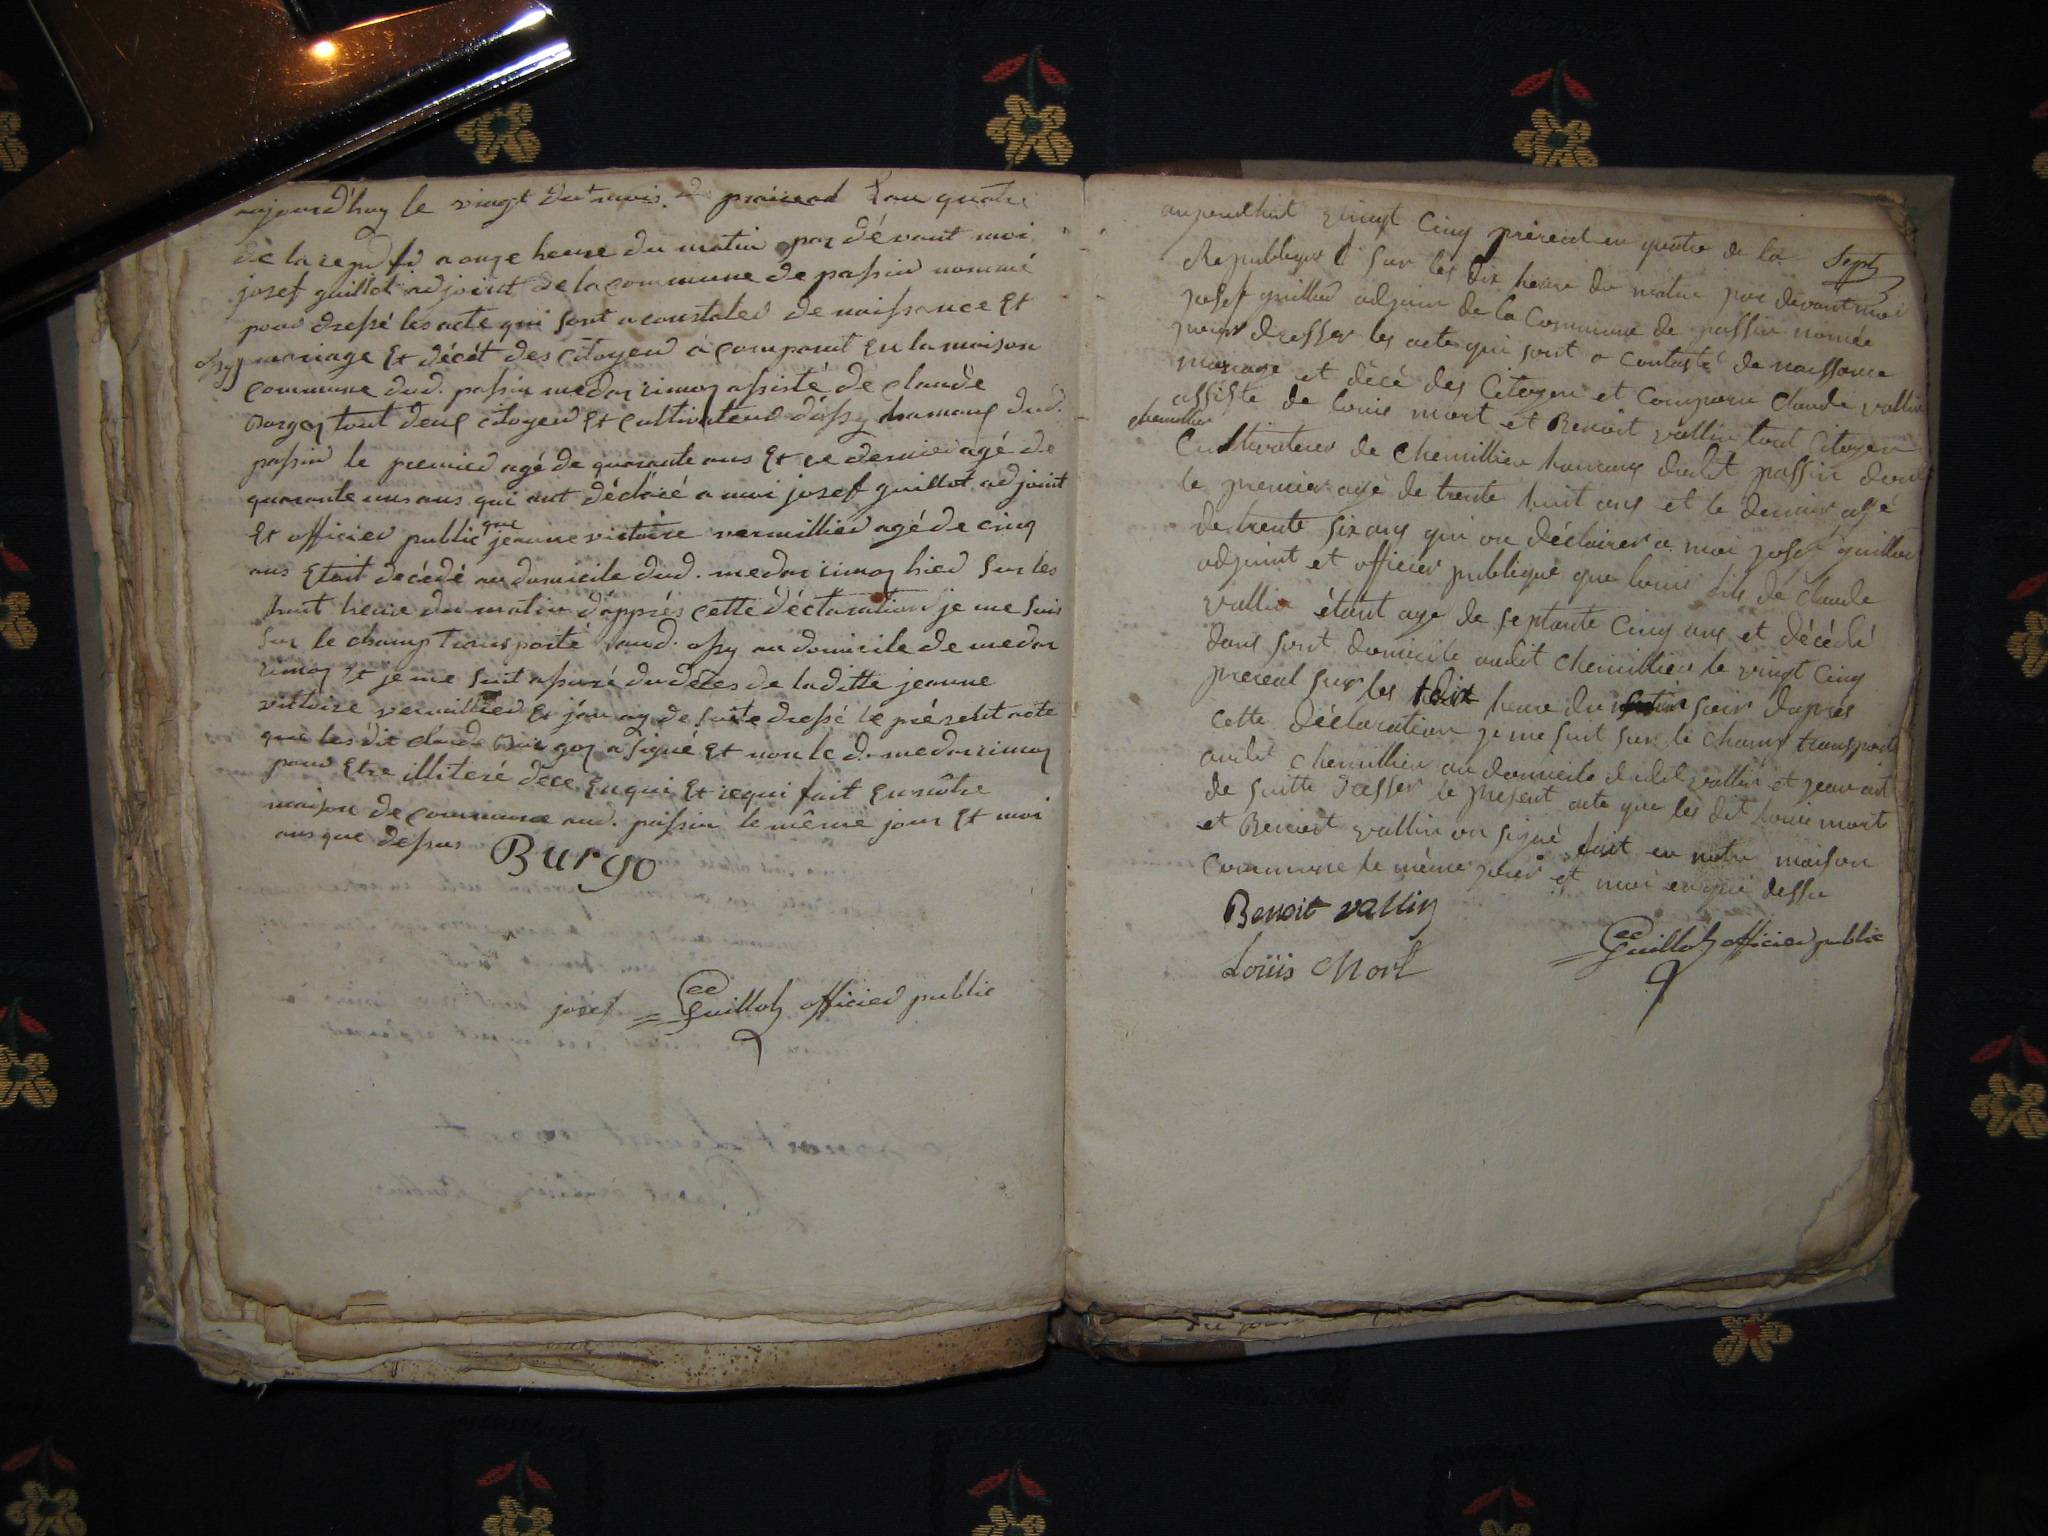 aujourd'huy le vingt du mois de prairial l'an quatre
de la repu fr a onze heure du matin par dévant moi
josef guillot adjoint de la commune de passin nommé
pour dressé les acte qui sont a constater de naissance Et
ossy mariage Et décèt des citoyend a comparut En la maison
commune dud. passin medar rimoz assisté de claude
Burgoz tout deux citoyend Et cultivateur d'ossy hamaux dud.
passin le premied agé de quarante ans Et ce dernier agé de
quarante uns ans qui ont déclaré a moi josef guillot adjoint
Et officied public que jeanne victoire vermillied agé de cinq
ans Etait decédé au domicile dud. medar rimoz hied sur lés
huit heure du matin d'apprés cette déctaration je me suis
sur le champ transporté aud. ossy au domicile de medar
rimoz Et je me suit assuré du deces de laditte jeanne
victoire vermillied Et j'an ay de suite dressé le présent acte
que lésdit claude Burgoz a signé Et non le d. medar rimoz
pour Etre illiteré de ce Enqui Et requi fait En nôtre
maison de commune aud. passin le même jour Et moi
ans que dessus Burgo
josef Guillot officied public
aujourdhuit vingt cinq prereal en quatre de la Sept
Republique f sur les dix heure du matin par devant moi
josef guillod adjoin de la Commune de passin nomée
pour dresser les acte qui sont a contasté de naissance
mariage et décé des Citoyen et comparu claude vallin
assiste de louis mort et Benoit vallin tout Citoyen
chemillier
Cultivateur de chemillier hamaux dudit passin dont
le premier agé de trente huit ans et le denier agé
de trente six ans qui on déclairer a moi josef guillod
adjoint et officier publique que louis fils de claude
vallin étant age de septante Cinq ans et décédé
dans sont domicile audit chemillier le vingt Cinq
prereal sur les heure du soir daprés
cette déclaration je me suit sur le champ transporté
audit chemillier au domicile dudit vallin et jean ait
de suitte dresser le present acte que les dit louis mort
et Benoit vallin on signé fait en notre maison
commune le même jour et moi en que dessu
Benoit vallin
Loüis Mort
Guillot officied public